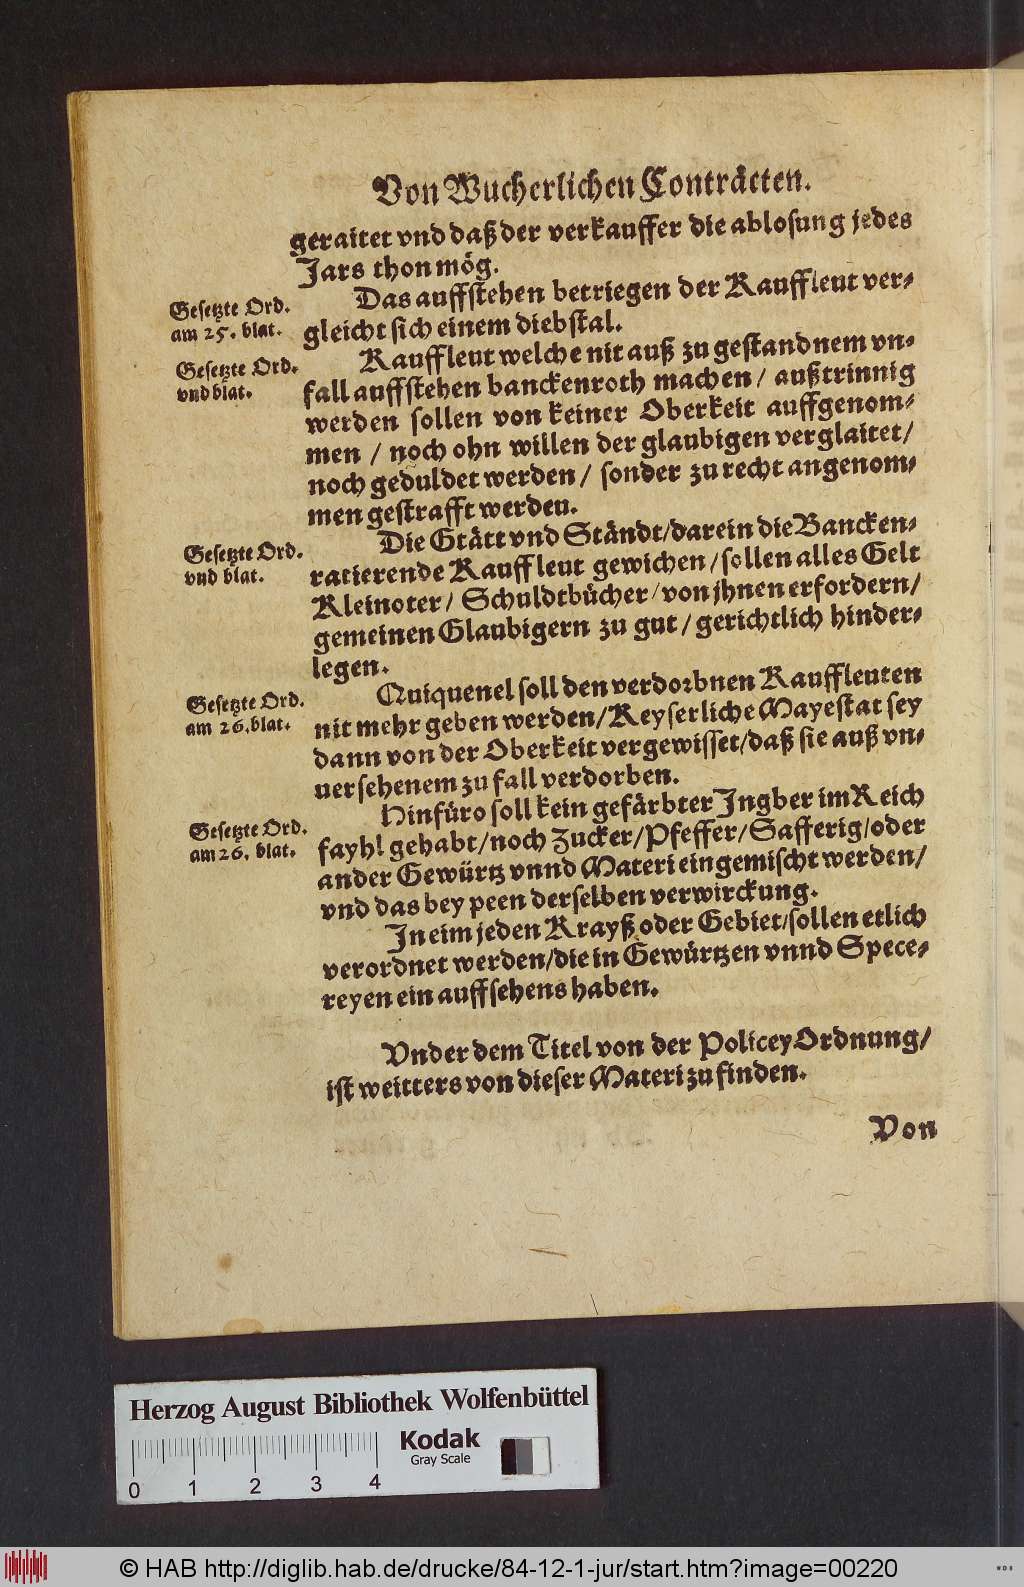 Von Wucherlichen Conträcten.
geraitet vnd daß der verkauffer die ablosung jedes
Jars thon mög.
Das auffstehen betriegen der Kauffleut ver-
gleicht sich einem diebstal.
Gesetzte Ord.
am 25. blat.
Kauffleut welche nit auß zugestandnem vn-
fall auffstehen banckenroth machen / außtrinnig
werden sollen von keiner Oberkeit auffgenom-
men / noch ohn willen der glaubigen verglaitet /
noch geduldet werden / sonder zu recht angenom-
men gestrafft werden.
Gesetzte Ord.
vnd blat.
Die Stätt vnd Ständt / darein die Bancken-
ratierende Kauffleut gewichen / sollen alles Gelt
Kleinoter / Schuldtbücher / von jhnen erfordern /
gemeinen Glaubigern zu gut / gerichtlich hinder-
legen.
Gesetzte Ord.
vnd blat.
Quiquenel soll den verdorbnen Kauffleuten
nit mehr geben werden / Keyserliche Mayestat sey
dann von der Oberkeit vergewisset / daß sie auß vn-
uersehenem zufall verdorben.
Gesetzte Ord.
am 26. blat.
Hinfüro soll kein gefärbter Jngber im Reich
fayhl gehabt / noch Zucker / Pfeffer / Safferig / oder
ander Gewürtz vnnd Materi eingemischt werden /
vnd das bey peen derselben verwirckung.
Gesetzte Ord.
am 26. blat.
Jn eim jeden Krayß oder Gebiet / sollen etlich
verordnet werden / die in Gewürtzen vnnd Spece-
reyen ein auffsehens haben.
Vnder dem Titel von der Policey Ordnung /
ist weitters von dieser Materi zu finden.
Von
Herzog August Bibliothek Wolfenbüttel
Kodak
Gray Scale
0 1 2 3 4
© HAB http://diglib.hab.de/drucke/84-12-1-jur/start.htm?image=00220